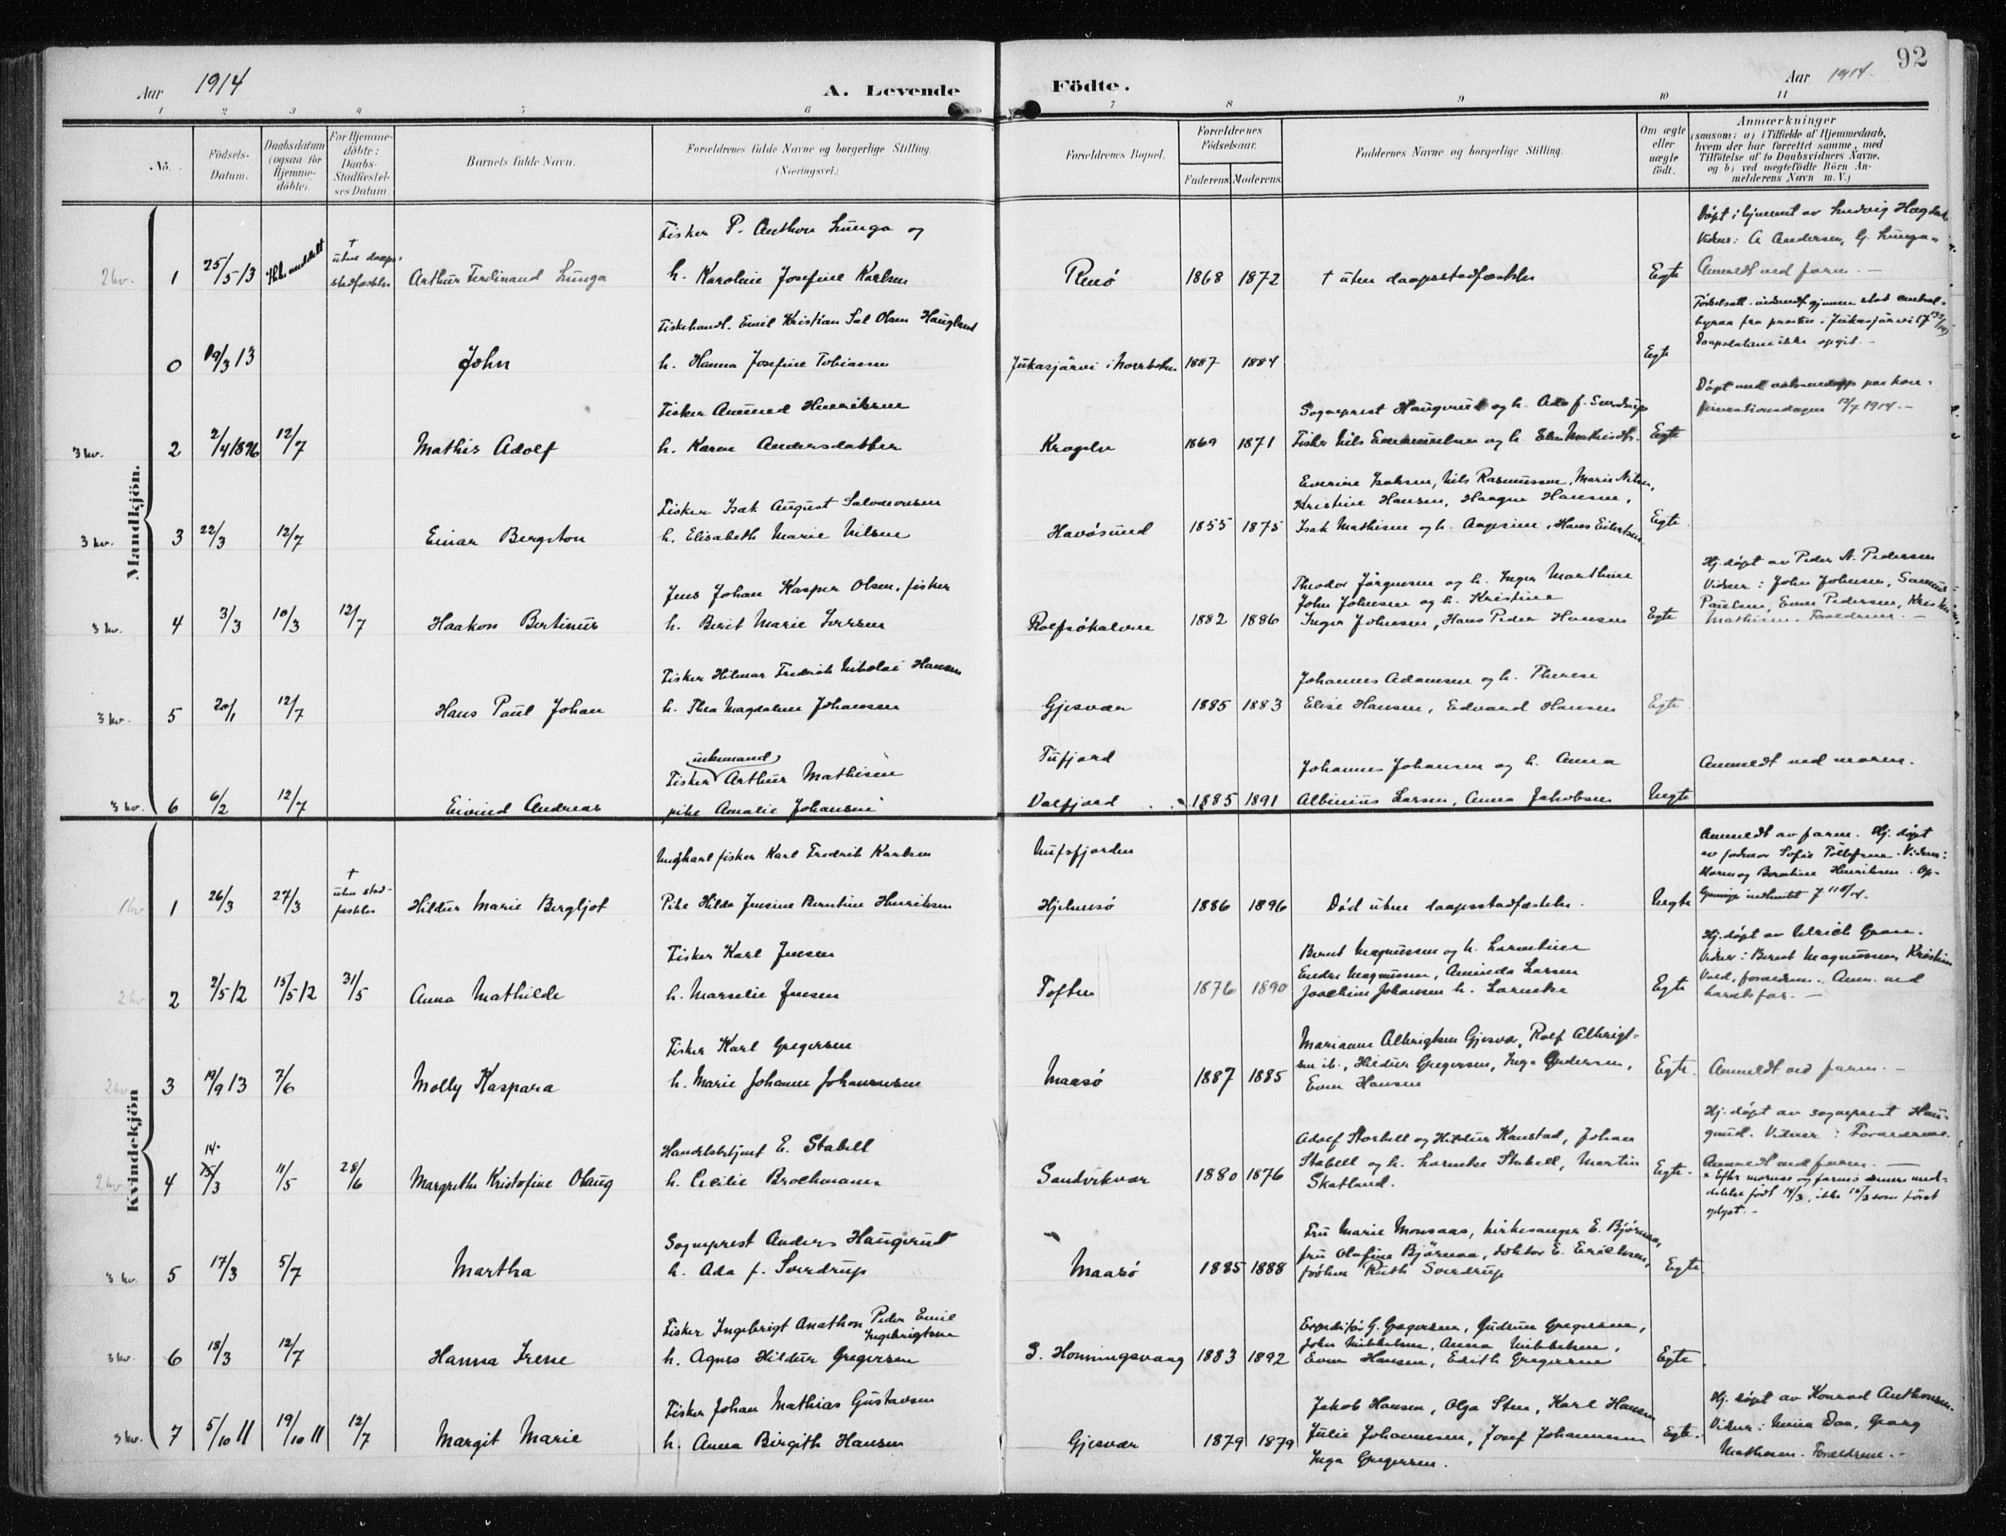 92
Aar 1914
A. Levende
Födte.
Aar 1914.
1 2 3 4 5 6 7 8 9 10 11
No.
Födsels-Datum.
Daabsdatum (ogsaa for Hjemme-döbte).
For Hjemme-döbte: Daabs-Stadfæstel-ses Datum.
Barnets fulde Navn.
Forældrenes fulde Navne og borgerlige Stilling.
(Næringsvei.)
Forældrenes Bopæl.
Forældrenes Födselsaar.
Faderens. Moderens.
Faddernes Navne og borgerlige Stilling.
Om ægte eller uægte födt.
Anmærkninger
(saasom: a) i Tilfælde af Hjemmedaab,
hvem der har forrettet samme, med
Tilföielse af to Daabsvidners Navne,
og b) ved uægtefödte Börn An-
melderens Navn m. V.)
Mandkjön.
Fisker P. Anthon Lunga og
Døpt i hjemmet av Ludvig
Vidner: A Andersen, G. Lunga
2 kv. 1 25/5 13 † uten daaps-stadfæstelse Arthur Ferdinand Lunga h. Karoline Josefine Karlsen Renö 1868 1872 † uten daapsstadfæstelse Egte Anmeldt ved faren. —
Fiskehandl. Emil Kristian Sal Olsen Haugland
0 19/3 13 John h. Hanna Josefine Tobiassen Jukasjärvi i Norrbotten 1887 1884 Egte
byraa fra presten i Jukasjärvi
Daapsdatum ikke opgit. —
Fisker Amund Henriksen
Sogneprest Haugerud og h. Ada f. Sverdrup
firmationsdagen 12/7 1914. —
3 kv. 2 2/4 1896 12/7 Mathis Adolf h. Karen Andersdatter 1869 1871 Fisker Nils Egte
Fisker Isak August Salomonsen
Everine Isaksen, Nils Rasmussen, Marie Nilsen,
Kristine Hansen, Haagen Hansen,
3 kv. 3 22/3 12/7 Einar Bergton h. Elisabeth Marie Nilsen Havösund 1855 1875 Isak Mathisen og h. Hans Eilertsen Egte
Jens Johan Kasper Olsen, fisker
Theodor Jørgensen og h. Inger Marthine
John Johnsen og h. Kristine
Hj. døpt av Peder A. Pedersen
Vidner: John Johnsen, Samuel
Paulsen, Even Pedersen, Kristen
3 kv. 4 3/3 10/3 12/7 Haakon Bertinus h. Berit Marie Iversen 1882 1886 Inger Johnsen, Hans Peder Hansen Egte Mathisen. Forældrene. —
Fisker Hilmar Fredrik Nikolai Hansen
Johannes Adamsen og h. Therese
3 kv. 5 20/1 12/7 Hans Paul Johan h. Thea Magdalene Johansen Gjesvær 1885 1883 Elise Hansen, Edvard Hansen Egte
Fisker Arthur Mathisen
Tufjord
Johannes Johansen og h. Anna
Anmeldt ved moren.
3 kv. 6 6/2 12/7 Eivind Andreas pike Amalie Johansen 1885 1891 Albinius Larsen, Anna Jakobsen Uegte
Kvindekjön
Ungkarl fisker Karl Fredrik Karlsen
Anmeldt av faren. Hj. døpt
1 kv 1 26/3 27/3 † uten stad-fæstelse Hildur Marie Bergljot Pike Hilda Jensine Berntine Henriksen Hjelmsö 1886 1896 Død uten daapsstadfæstelse. Uegte
Fisker Karl Jensen
Bernt Magnussen og h. Larentine
Endre Magnussen, Aminda Larsen
Hj. døpt av Ulrich Gran.
Vidner: Bernt Magnussen, Kristian
2 kv 2 2/5 12 15/5 12 31/5 Anna Mathilde h. Marselie Jensen Toften 1876 1890 Joachim Johansen h. Larentse Egte
Fisker Karl Gregersen
Marianne Albrigtsen Gjesvær, Rolf Albrigt-
sen ib., Hildur Gregersen, Inga Andersen,
2 kv 3 19/9 13 7/6 Molly Kaspara h. Marie Johanne Johannesen Maasö 1887 1885 Even Hansen Egte. Anmeldt ved faren. —
Handelsbetjent E. Stabell
Adolf Stabell og Hildur Kanstad, Johan
Stabell og h. Larentse Stabell, Martin
Skatland.
Hj. døpt av sogneprest Hau-
gerud. Vidner: Forældrene.
Anmeldt ved faren. —
2 kv 4 14. 15/3 11/5 28/6 Margrethe Kristofine Olaug h. Cecilie Brochmann Sandvikvær 1880 1876 Egte.
Efter morens og farens senere med-
delelse født 14/3, ikke 15/3 som først
oplyst. —
Sogneprest Anders Haugerud
Fru Marie Monsaas, kirkesanger E. Bjørnaa,
fru Olafine Bjørnaa, doktor E. Erichsen,
3 kv. 5 17/3 5/7 Martha h. Ada f. Sverdrup Maasö 1885 1888 frøken Ruth Sverdrup Egte.
Fisker Ingebrigt Anathon Peder Emil Ingebrigtsen
Expeditør G. Gregersen, Gudrun Gregersen,
John Mikkelsen, Anna Mikkelsen,
3 kv. 6 18/3 12/7 Hanna Irene h. Agnes Hildur Gregersen S. Honningsvaag 1883 1892 Even Hansen, Edith Gregersen Egte
Fisker Johan Mathias Gustavsen
Jakob Hansen, Olga Sten, Karl Hansen
Hj. døpt av Konrad Anthonsen.
3 kv. 7 5/10 11 19/10 11 12/7 Margit Marie h. Anna Birgith Hansen Gjesvær 1879 1879 Julie Johannesen, Josef Johannesen Egte.
Inga Gregersen.
Forældrene. —